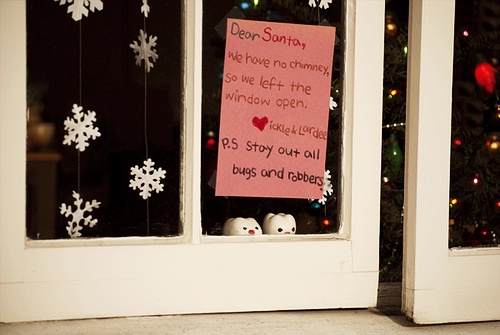 Dear Santa,
We have no chimney,
so we left the
window open.
ickle & Lardee
P.S Stay out all
bugs and robbers